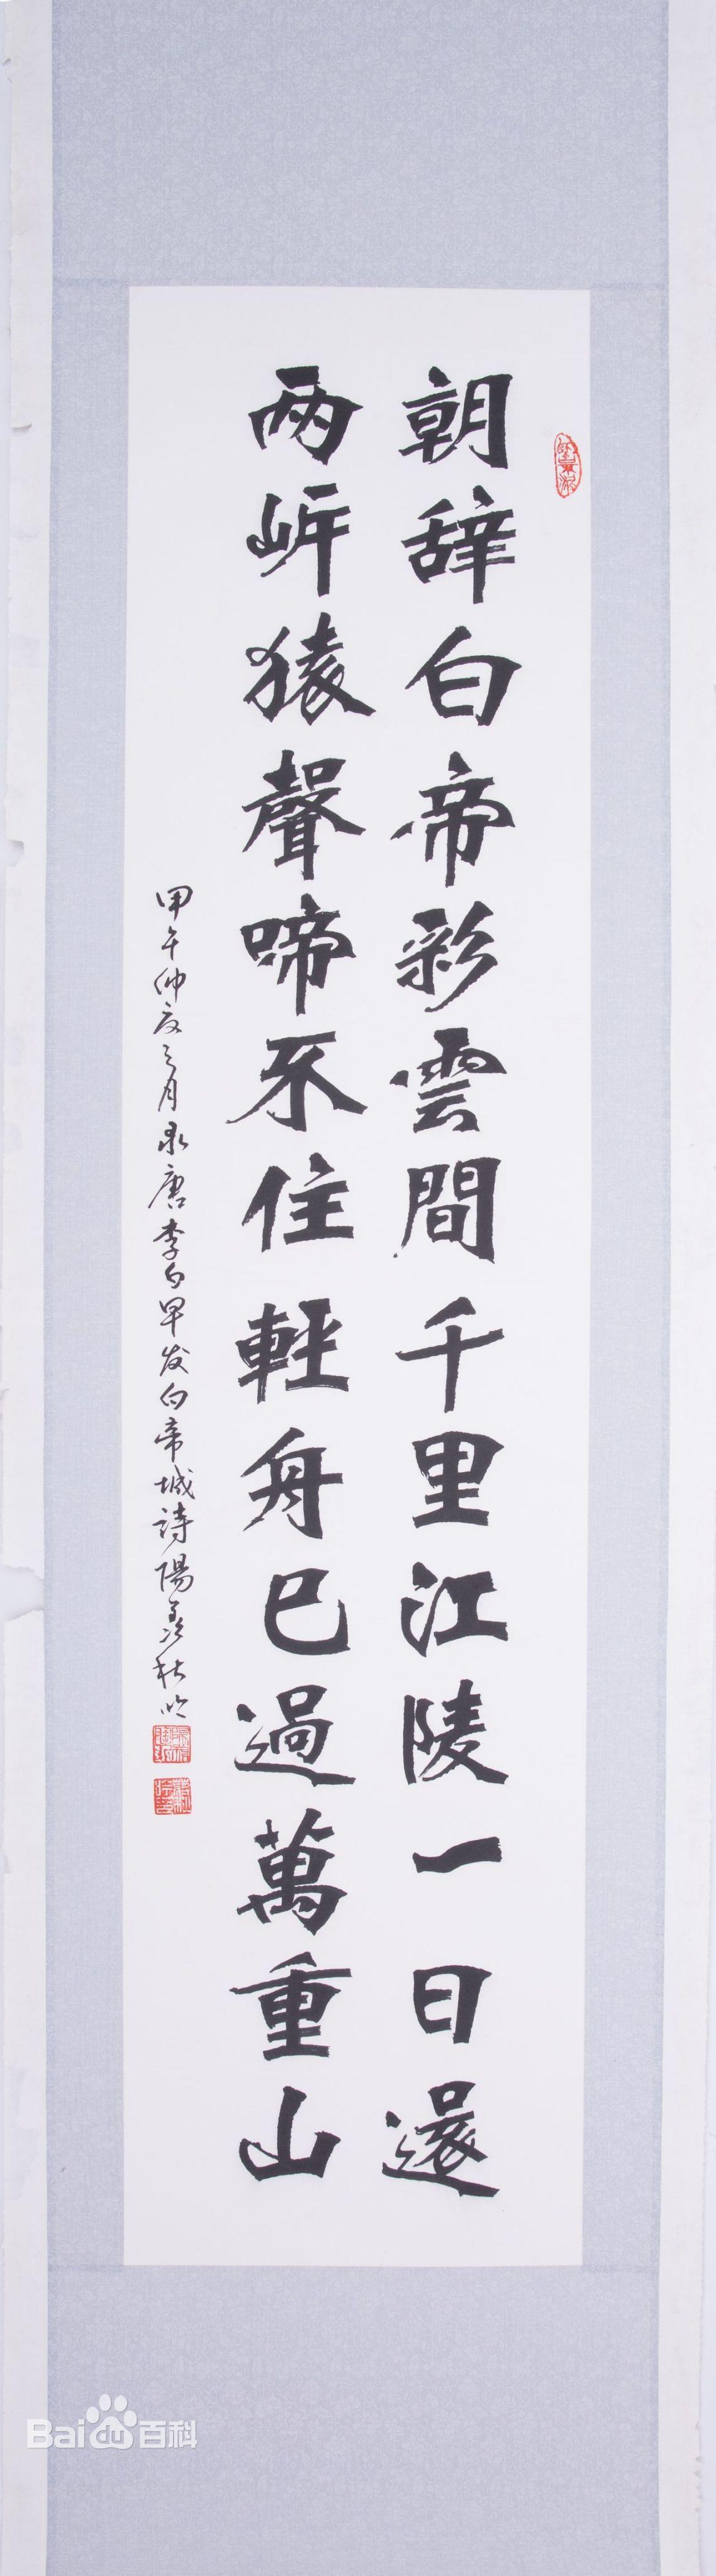 朝辞白帝彩雲間千里江陵一日還
两岍猿聲啼不住輕舟已過萬重山
甲午仲夏之月录唐李白早发白帝城詩陽羡秋
Bai百科